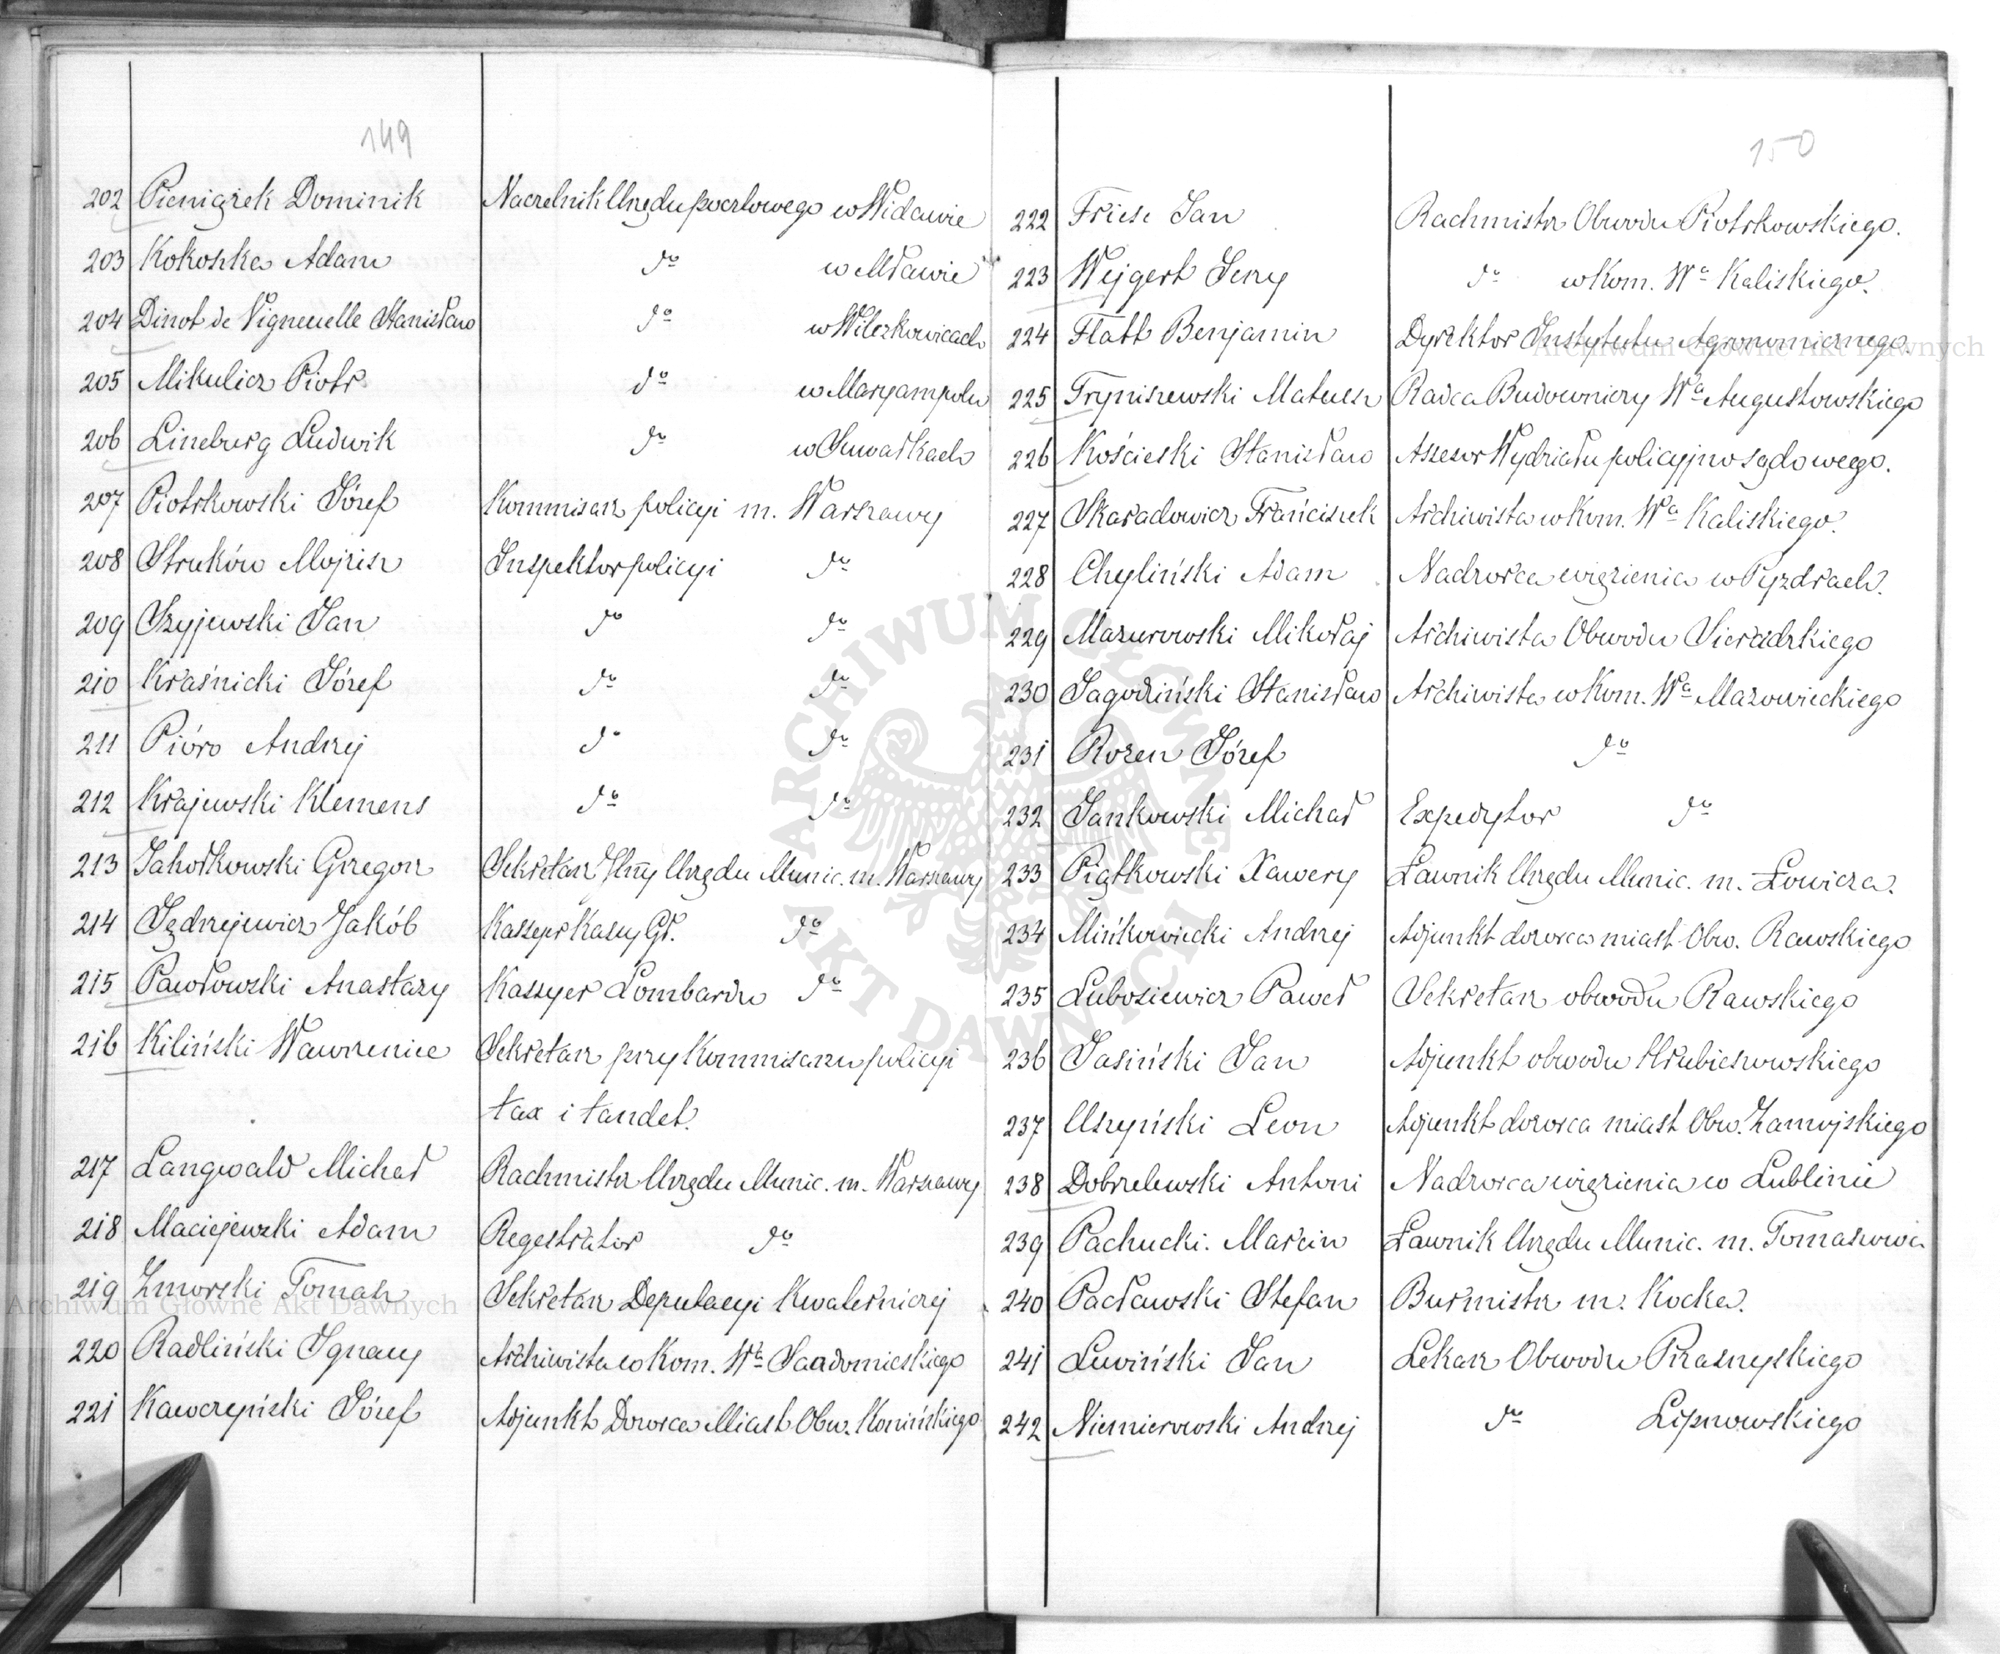 149
202 Pieniążek Dominik Naczelnik Urzędu pocztowego w Widawie
203 Kokoszka Adam do w Mławie
204 Dinot de Vigneuelle Stanisław do w Wilczkowicach
205 Mikulicz Piotr do w Maryampolu
206 Lineburg Ludwik do w Suwałkach
207 Piotrkowski Józef Kommisarz policyi m. Warszawy
208 Struków Mojżisz Inspektor policyi do
209 Szyjewski Jan do do
210 Kraśnicki Józef do do
211 Pióro Andrzej do do
212 Krajewski Klemens do do
213 Jahołkowski Grzegorz Sekretarz Jlny Urzędu Munic. m. Warszawy
214 Jędrzejewicz Jakób Kassyer Kassy Gł. do
215 Pawłowski Anastazy Kassyer Lombardu do
216 Kiliński Wawrzeniec Sekretarz przy Kommisarzu policyi
tax i tandet.
217 Langwald Michał Rachmistrz Urzędu Munic. m. Warszawy
218 Maciejewski Adam Regestrator do
219 Zmorski Tomasz Sekretarz Deputacyi Kwaterniczej
220 Radliński Ignacy Archiwista w Kom. Wa Sandomierskiego
221 Kawczyński Józef Adjunkt Dozorca Miast Obw. Konińskiego
150
222 Friese Jan Rachmistrz Obwodu Piotrkowskiego.
223 Wejgert Jerzy do w Kom. Wa Kaliskiego.
224 Flatt Benjamin Dyrektor Instytutu Agronomicznego.
225 Tryniszewski Mateusz Radca Budowniczy Wa Augustowskiego
226 Kościeski Stanisław Assesor Wydziału policyjno sądowego.
227 Skaradowicz Franciszek Archiwista w Kom. Wa Kaliskiego.
228 Chyliński Adam Nadzorca więzienia w Pyzdrach.
229 Mazurowski Mikołaj Archiwista Obwodu Sieradzkiego
230 Jagodziński Stanisław Archiwista w Kom. Wa Mazowieckiego
231 Rozen Józef do
232 Jankowski Michał Expedytor do
233 Piątkowski Xawery Ławnik Urzędu Munic. m. Łowicza.
234 Mińkowiecki Andrzej Adjunkt dozorca miast Obw. Rawskiego
235 Lubosiewicz Paweł Sekretarz obwodu Rawskiego
236 Jasiński Jan Adjunkt obwodu Hrubieszowskiego
237 Uszyński Leon Adjunkt dozorca miast Obw. Zamojskiego
238 Dobrzelewski Antoni Nadzorca więzienia w Lublinie
239 Pachucki. Marcin Ławnik Urzędu Munic. m. Tomaszowa
240 Pacławski Stefan Burmistrz m. Kocka.
241 Luwiński Jan Lekarz Obwodu Przasnyskiego
242 Niemierowski Andrzej do Lipnowskiego
ARCHIWUM GŁÓWNE AKT DAWNYCH
Archiwum Główne Akt Dawnych
Archiwum Główne Akt Dawnych